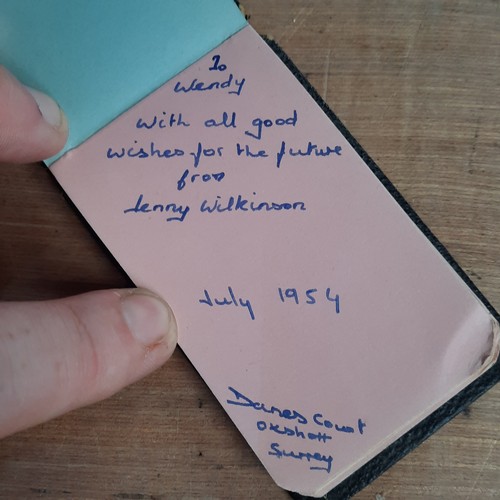 To
Wendy
with all good
wishes for the future
from
Jenny Wilkinson
July 1954
Danes Court
Oxshott
Surrey